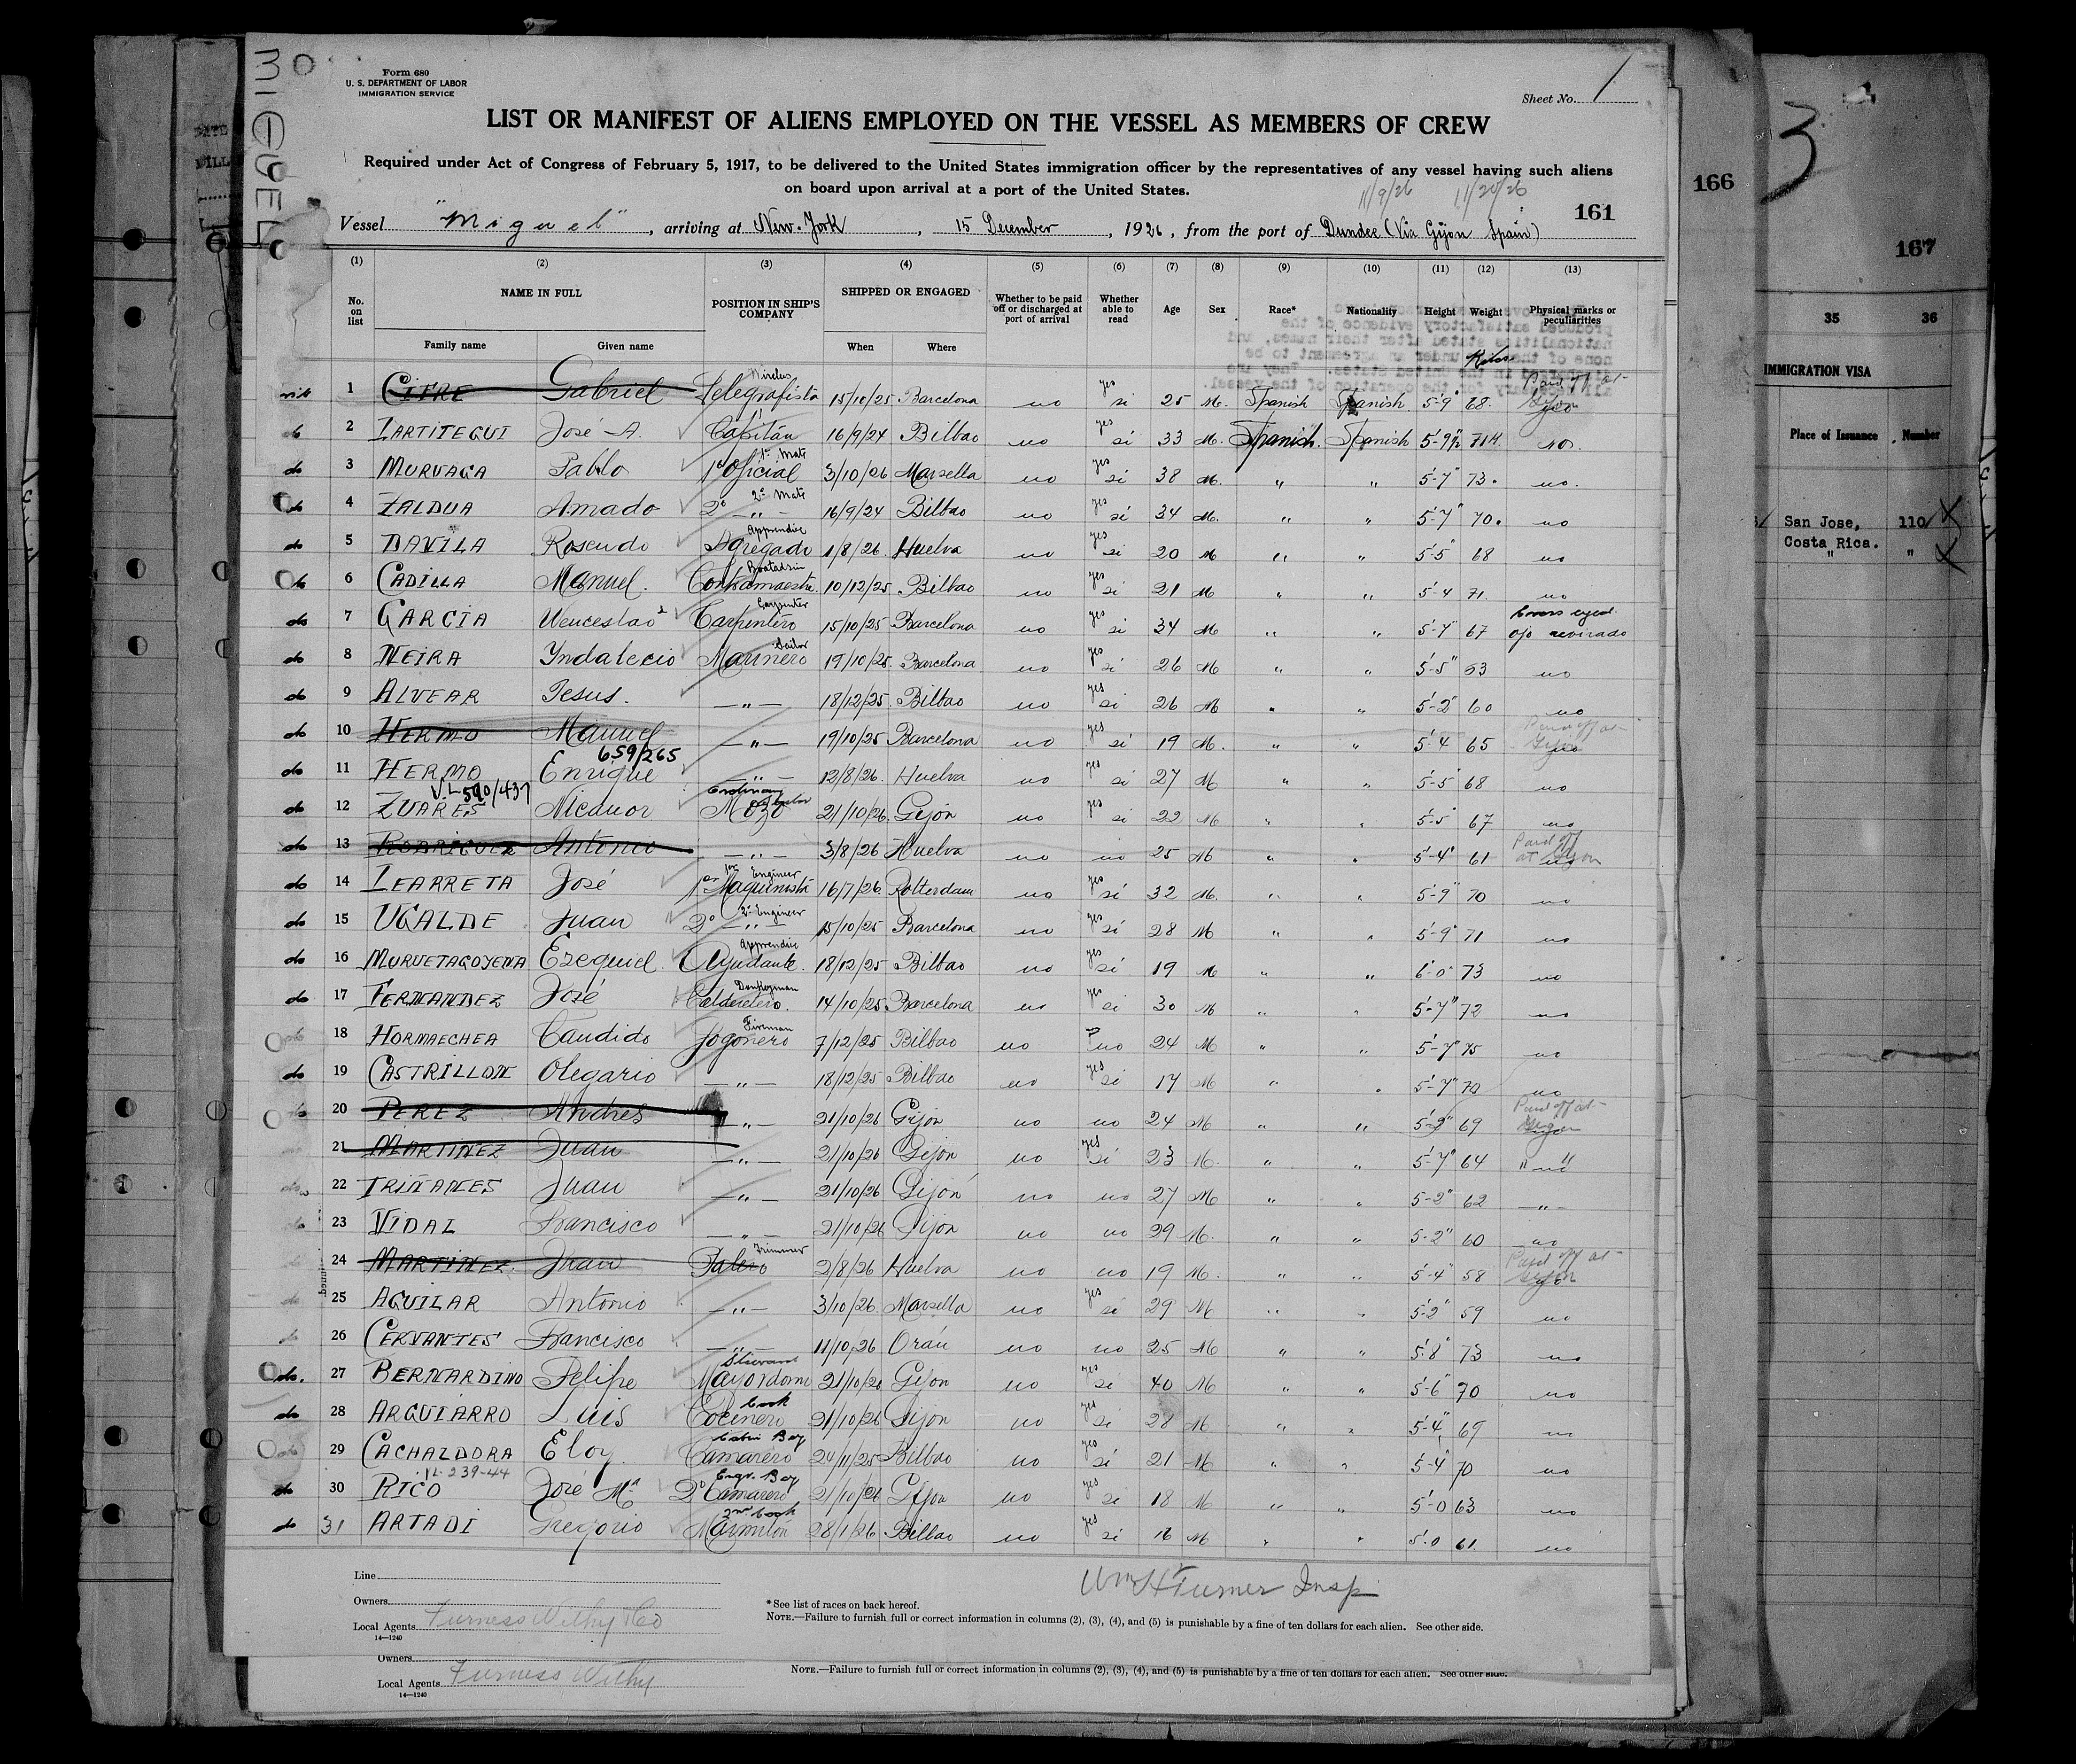 MIGUEL
Form 680
U. S. DEPARTMENT OF LABOR
IMMIGRATION SERVICE
Sheet No. 1
LIST OR MANIFEST OF ALIENS EMPLOYED ON THE VESSEL AS MEMBERS OF CREW
Required under Act of Congress of February 5, 1917, to be delivered to the United States immigration officer by the representatives of any vessel having such aliens
on board upon arrival at a port of the United States.
11/9/26 11/20/26
161
Vessel "Miguel", arriving at New-York, 15 December, 1926, from the port of Dundee (Via Gijon Spain)
(1) (2) (3) (4) (5) (6) (7) (8) (9) (10) (11) (12) (13)
No. on list NAME IN FULL POSITION IN SHIP'S COMPANY SHIPPED OR ENGAGED Whether to be paid off or discharged at port of arrival Whether able to read Age Sex Race* Nationality Height Weight Physical marks or peculiarities
Family name Given name When Where
Kilos
1 CIFRE Gabriel Wireless Telegrafista 15/10/25 Barcelona no yes si 25 M. Spanish Spanish 5-9 68. Paid off at Gijon
do 2 IARTITEGUI Jose A. Capitán 16/9/24 Bilbao no yes sí 33 M. Spanish. Spanish 5'-9½ 71½. no.
do 3 MURUAGA Pablo 1st Mate 1º oficial 3/10/26 Marsella no yes sí 38 M. " " 5'-7" 73. no.
do 4 ZALDUA Amado 2º Mate 2º -"- 16/9/24 Bilbao no yes sí 34 M. " " 5'-7" 70. no
do 5 DAVILA Rosendo Apprendice Agregado 1/8/26. Huelva no yes si 20 M " " 5'-5" 68 no
do 6 CADILLA Manuel. Boatadsin Contramaestre. 10/12/25 Bilbao no yes si 21 M " " 5'-4 71. no
do 7 GARCIA Wenceslao Carpenter Carpintero 15/10/25 Barcelona no yes si 34 M " " 5'-7" 67 Cross eyed. ojo
do 8 NEIRA Yndalecio Sailor Marinero 19/10/25. Barcelona no yes sí 26 M " " 5'-5" 63 no
do 9 ALVEAR Jesus. -"- 18/12/25. Bilbao no yes si 26 M " " 5'-2" 60 no
do 10 HERMO Manuel -"- 19/10/25 Barcelona no yes sí 19 M. " " 5'-4 65 Paid off at Gijon
659/265
do 11 HERMO Enrique -"- 12/8/26. Huelva no yes si 27 M " " 5'-5" 68 no
V.L. 590/437
do 12 ZUARES Nicanor Ordinary Sailor Mozo 21/10/26. Gijon no yes si 22 M " " 5'-5" 67 no
do 13 RODRIGUEZ Antonio -"- 3/8/26 Huelva no no 25 M " " 5'-4" 61 Paid off at Gijon
do 14 LEARRETA José 1er Engineer 1er Maquinista 16/7/26. Rotterdam no yes sí 32 M. " " 5'-9" 70 no
do 15 UGALDE Juan 2º Engineer 2º -"- 15/10/25 Barcelona no yes sí 28 M " " 5'-9" 71 no
do 16 MURUETAGOYENA Ezequiel. Apprendice Ayudante. 18/12/25 Bilbao no yes sí 19 M " " 6'-0" 73 no
do 17 FERNANDEZ José Donkeyman Calderetero. 14/10/25 Barcelona no yes si 30 M " " 5'-7" 72 no
do 18 HORMAECHEA Candido Fireman Fogonero 7/12/25 Bilbao no no 24 M " " 5'-7" 75 no
do 19 CASTRILLON Olegario -"- 18/12/25 Bilbao no yes si 17 M " " 5'-7" 70 no
do 20 PEREZ Andres -"- 21/10/26 Gijon no no 24 M " " 5'-3" 69 Paid off at Gijon
21 MARTINEZ Juan -"- 21/10/26 Gijon no yes sí 23 M. " " 5'-7" 64 " no "
do 22 TRIÑANES Juan -"- 21/10/26 Gijon no no 27 M " " 5-2" 62 -"-
do 23 VIDAL Francisco -"- 21/10/26 Gijon no no 29 M. " " 5-2" 60 no
do 24 MARTINEZ. Juan Trimmer Palero 2/8/26 Huelva no no 19 M. " " 5'-4" 58 Paid off at Gijon
do 25 AGUILAR Antonio -"- 3/10/26. Marsella no yes sí 29 M " " 5'2" 59 no
do 26 CERVANTES Francisco -"- 11/10/26 Orán no no 25 M " " 5'8" 73 no
do. 27 BERNARDINO Felipe Steward Mayordomo 21/10/26 Gijon no yes si 40 M " " 5'-6" 70 no
do 28 ARGUIARRO Luis Cook Cocinero 21/10/26 Gijon no yes si 28 M " " 5'-4" 69 no
do 29 CACHALDORA Eloy. Cabin Boy Camarero 24/11/25 Bilbao no yes sí 21 M " " 5'-4" 70 no
VL 239-44
do 30 RICO José Mª Engr. Boy 2º Camarero 21/10/26 Gijon no yes si 18 M " " 5'-0 63 no
do 31 ARTADI Gregorio 2nd Cook Marmitón 28/1/26 Bilbao no yes sí 16 M " " 5'-0 61. no
Line
Wm H Turner Insp
Owners
*See list of races on back hereof.
Local Agents Furness Withy & Co
NOTE.—Failure to furnish full or correct information in columns (2), (3), (4), and (5) is punishable by a fine of ten dollars for each alien. See other side.
14—1240
Owners
Local Agents Furness Withy
NOTE.—Failure to furnish full or correct information in columns (2), (3), (4), and (5) is punishable by a fine of ten dollars for each alien. See other side.
14—1240
166
3
167
35 36
IMMIGRATION VISA
Place of Issuance Number
San Jose, 110
Costa Rica.
" "